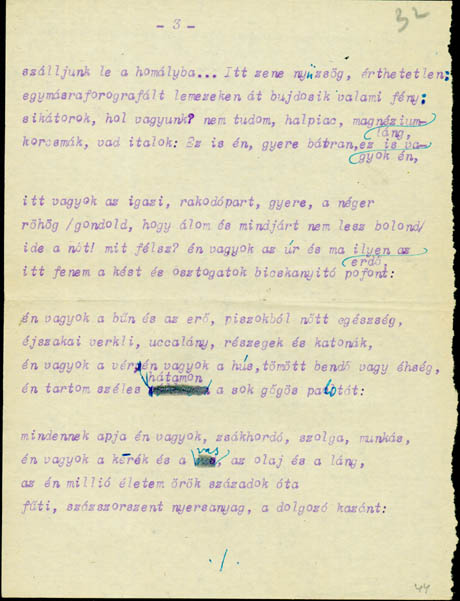 - 3 -
32
szálljunk le a homályba... Itt zene nyüzsög, érthetetlen:
egymásraforografált lemezeken át bujdosik valami fény:
sikátorok, hol vagyunk? nem tudom, halpiac, magnézium-
láng,
korcsmák, vad italok: Ez is én, gyere bátran, ez is va-
gyok én,
itt vagyok az igazi, rakodópart, gyere, a néger
röhög /gondold, hogy álom és mindjárt nem lesz bolond/
ide a nőt! mit félsz? én vagyok az úr és ma ilyen az
erdő,
itt fenem a kést és osztogatok bicskanyitó pofont:
én vagyok a bűn és az erő, piszokból nőtt egészség,
éjszakai verkli, uccalány, részegek és katonák,
én vagyok a vér, én vagyok a hús, tömött bendő vagy éhség,
hátamon
én tartom széles a sok gőgös palotát:
mindennek apja én vagyok, zsákhordó, szolga, munkás,
vas
én vagyok a kerék és a , az olaj és a láng,
az én millió életem örök századok óta
fűti, százszorszent nyersanyag, a dolgozó kazánt:
./.
44